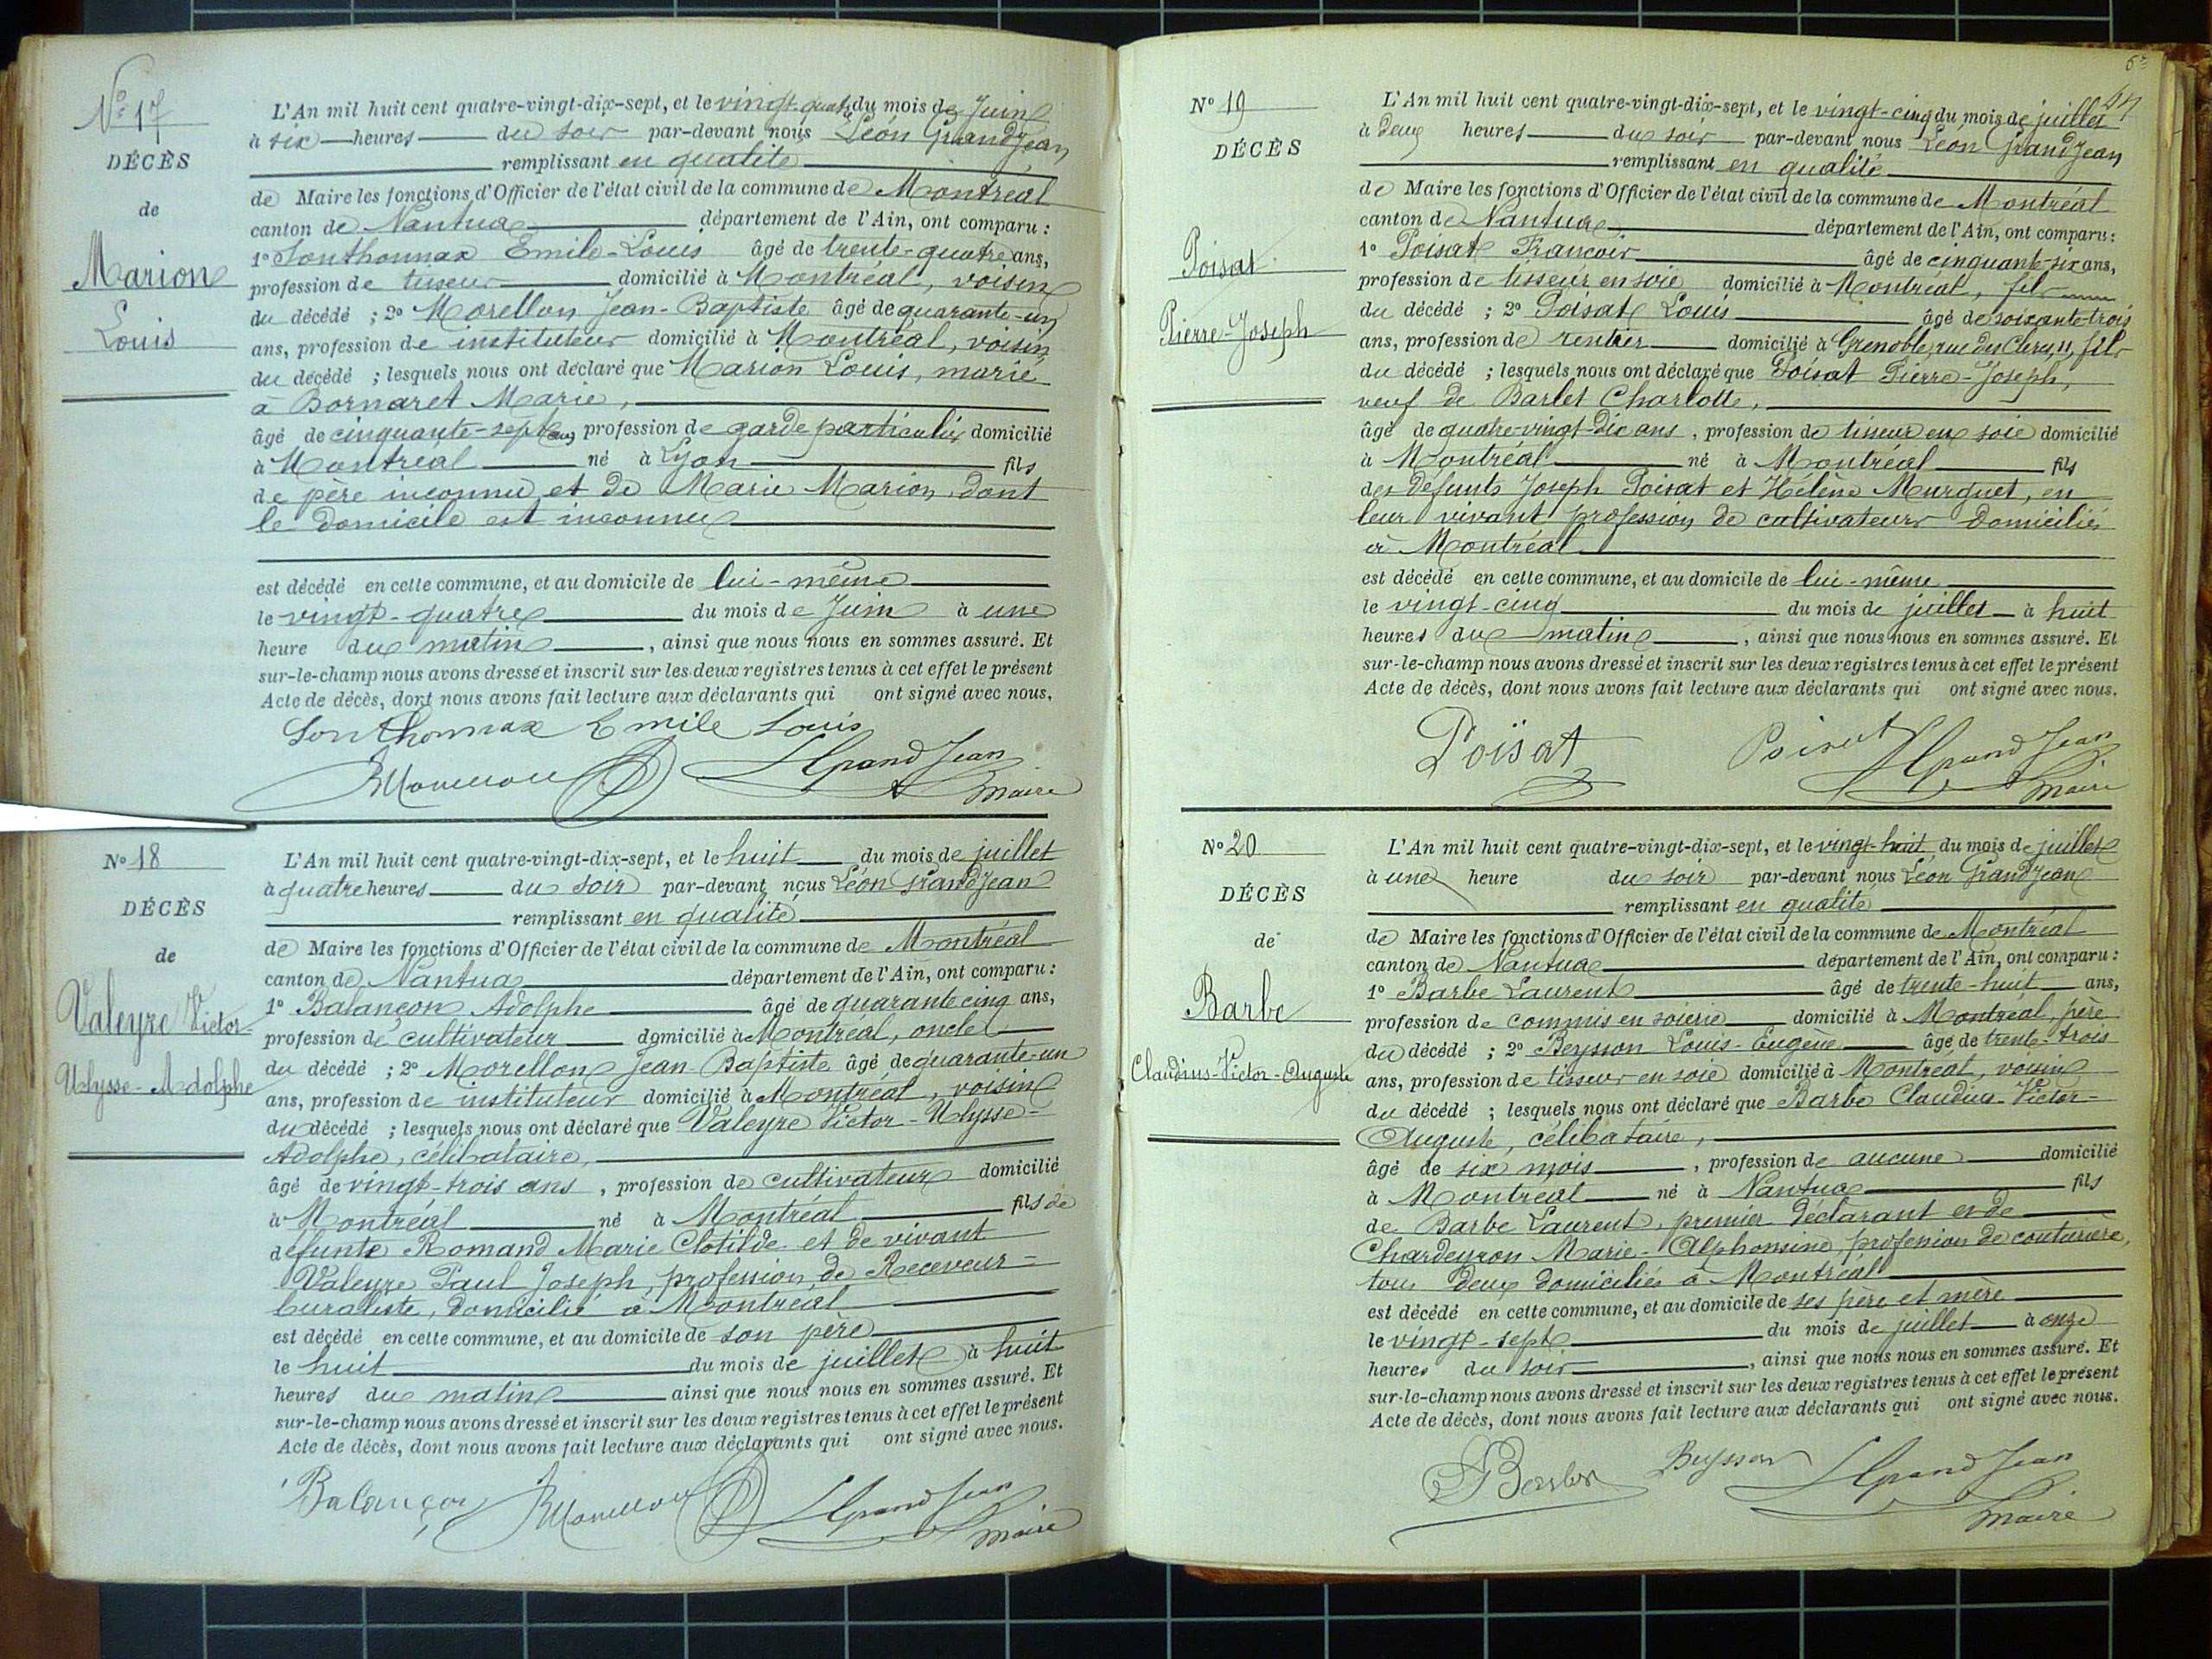 Nº 17
DÉCÈS
de
Marion
Louis
L'An mil huit cent quatre-vingt-dix-sept, et le vingt-quatre du mois de Juin
à six heures du soir par-devant nous Léon Grandjean
remplissant en qualité
de Maire les fonctions d'Officier de l'état civil de la commune de Montréal
canton de Nantua département de l'Ain, ont comparu :
1º Sonthonnax Emile-Louis âgé de trente-quatre ans,
profession de tisseur domicilié à Montréal, voisin
du décédé ; 2º Morellon Jean-Baptiste âgé de quarante-un
ans, profession de instituteur domicilié à Montréal, voisin
du décédé ; lesquels nous ont déclaré que Marion Louis, marié
à Bornaret Marie,
âgé de cinquante-sept ans profession de garde particulier domicilié
à Montréal né à Lyon fils
de père inconnu et de Marie Marion, dont
le domicile est inconnu
est décédé en cette commune, et au domicile de lui-même
le vingt-quatre du mois de Juin à une
heure du matin, ainsi que nous nous en sommes assuré. Et
sur-le-champ nous avons dressé et inscrit sur les deux registres tenus à cet effet le présent
Acte de décès, dont nous avons fait lecture aux déclarants qui ont signé avec nous.
Sonthonnax Emile Louis
JBMorellon LGrandJean
maire
Nº 18
DÉCÈS
de
Valeyre Victor-
Ulysse-Adolphe
L'An mil huit cent quatre-vingt-dix-sept, et le huit du mois de juillet
à quatre heures du soir par-devant nous Léon Grandjean
remplissant en qualité
de Maire les fonctions d'Officier de l'état civil de la commune de Montréal
canton de Nantua département de l'Ain, ont comparu :
1º Balançon Adolphe âgé de quarante cinq ans,
profession de cultivateur domicilié à Montréal, oncle
du décédé ; 2º Morellon Jean-Baptiste âgé de quarante-un
ans, profession de instituteur domicilié à Montréal, voisin
du décédé ; lesquels nous ont déclaré que Valeyre Victor-Ulysse-
Adolphe, célibataire,
âgé de vingt-trois ans, profession de cultivateur domicilié
à Montréal né à Montréal fils de
défunte Romand Marie Clotilde et de vivant
Valeyre Paul Joseph, profession de Receveur-
buraliste, domicilié à Montréal
est décédé en cette commune, et au domicile de son père
le huit du mois de juillet à huit
heures du matin ainsi que nous nous en sommes assuré. Et
sur-le-champ nous avons dressé et inscrit sur les deux registres tenus à cet effet le présent
Acte de décès, dont nous avons fait lecture aux déclarants qui ont signé avec nous.
Balançon JBMorellon LGrandJean
maire
Nº 19
DÉCÈS
Poisat
Pierre-Joseph
L'An mil huit cent quatre-vingt-dix-sept, et le vingt-cinq du mois de juillet
à deux heures du soir par-devant nous Léon Grandjean
remplissant en qualité
de Maire les fonctions d'Officier de l'état civil de la commune de Montréal
canton de Nantua département de l'Ain, ont comparu :
1º Poisat François âgé de cinquante-six ans,
profession de tisseur en soie domicilié à Montréal, fils
du décédé ; 2º Poisat Louis âgé de soixante-trois
ans, profession de rentier domicilié à Grenoble, rue des Clercs, 11, fils
du décédé ; lesquels nous ont déclaré que Poisat Pierre-Joseph,
veuf de Barlet Charlotte,
âgé de quatre-vingt-dix ans, profession de tisseur en soie domicilié
à Montréal né à Montréal fils
des défunts Joseph Poisat et Hélène Murguet, en
leur vivant profession de cultivateurs domiciliés
à Montréal
est décédé en cette commune, et au domicile de lui-même
le vingt-cinq du mois de juillet à huit
heures du matin, ainsi que nous nous en sommes assuré. Et
sur-le-champ nous avons dressé et inscrit sur les deux registres tenus à cet effet le présent
Acte de décès, dont nous avons fait lecture aux déclarants qui ont signé avec nous.
Poïsat Poisat LGrandJean
maire
Nº 20
DÉCÈS
de
Barbe
Claudius-Victor-Auguste
L'An mil huit cent quatre-vingt-dix-sept, et le vingt-huit du mois de juillet
à une heure du soir par-devant nous Léon Grandjean
remplissant en qualité
de Maire les fonctions d'Officier de l'état civil de la commune de Montréal
canton de Nantua département de l'Ain, ont comparu :
1º Barbe Laurent âgé de trente-huit ans,
profession de commis en soierie domicilié à Montréal, père
du décédé ; 2º Beysson Louis-Eugène âgé de trente-trois
ans, profession de tisseur en soie domicilié à Montréal, voisin
du décédé ; lesquels nous ont déclaré que Barbe Claudius-Victor-
Auguste, célibataire,
âgé de six mois, profession de aucune domicilié
à Montréal né à Nantua fils
de Barbe Laurent, premier déclarant et de
Chardeyron Marie-Alphonsine, profession de couturière,
tous deux domiciliés à Montréal
est décédé en cette commune, et au domicile de ses père et mère
le vingt-sept du mois de juillet à onze
heures du soir, ainsi que nous nous en sommes assuré. Et
sur-le-champ nous avons dressé et inscrit sur les deux registres tenus à cet effet le présent
Acte de décès, dont nous avons fait lecture aux déclarants qui ont signé avec nous.
Beysson LGrandJean
maire